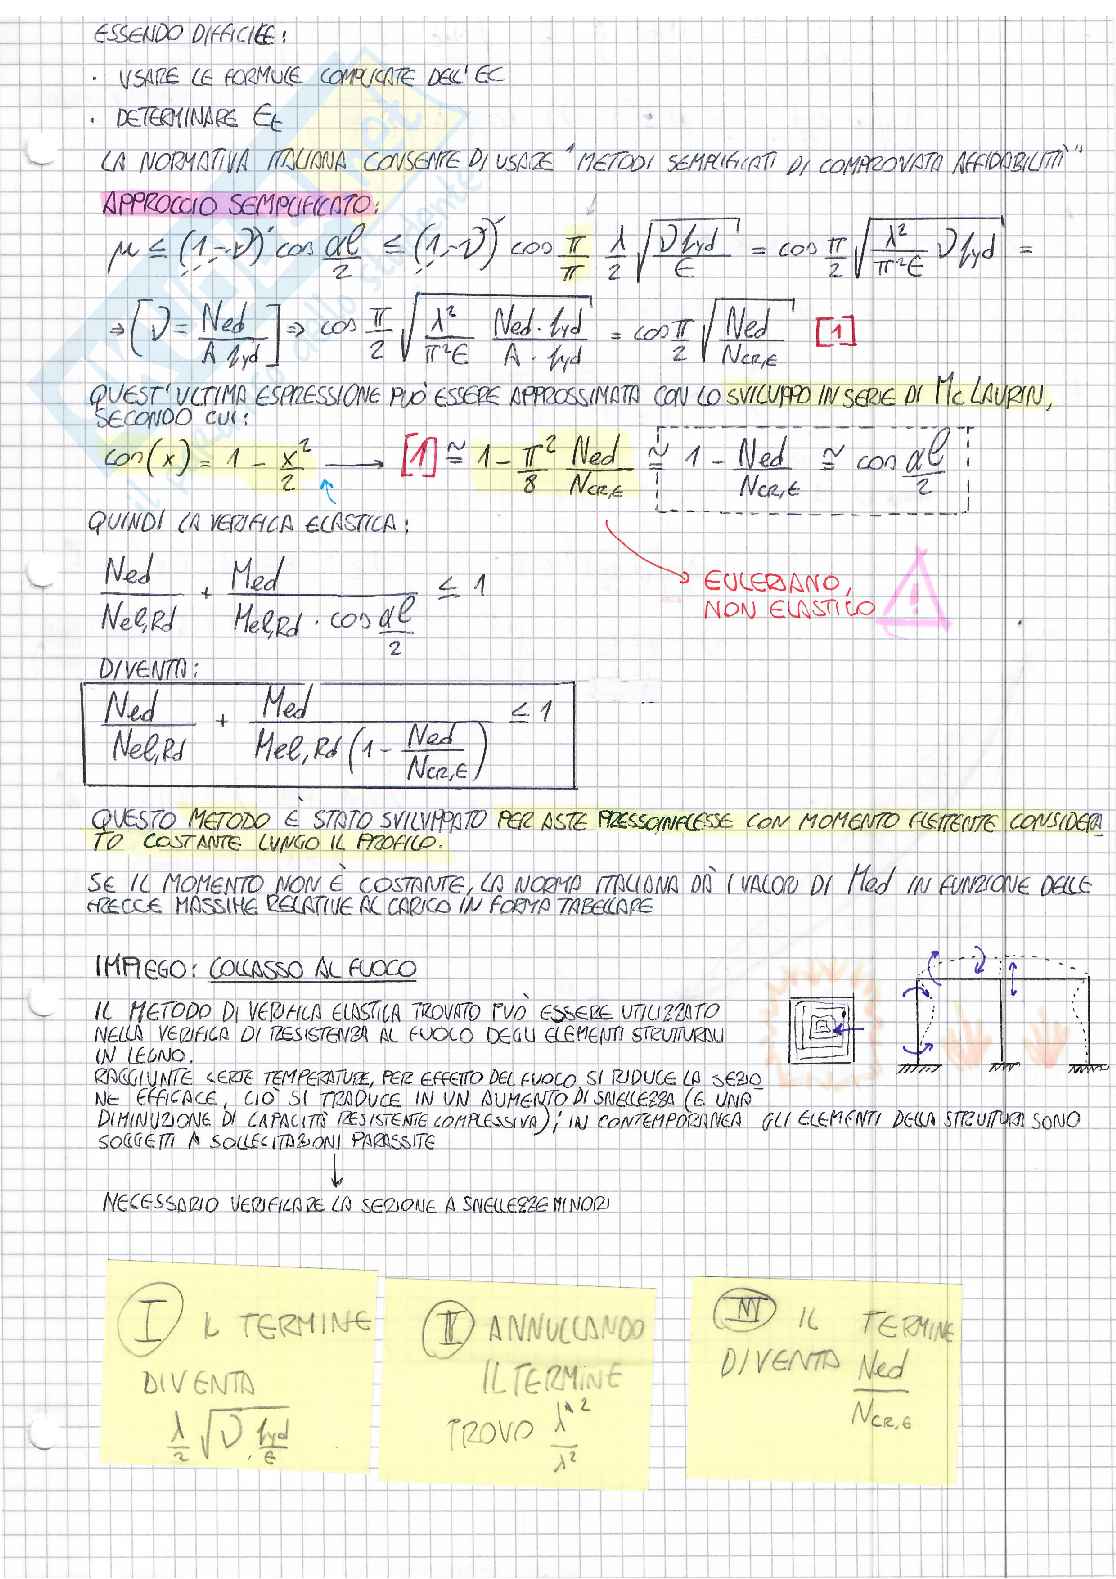 ESSENDO DIFFICILE:
· USARE LE FORMULE COMPLICATE DELL'EC
· DETERMINARE Et
LA NORMATIVA ITALIANA CONSENTE DI USARE "METODI SEMPLIFICATI DI COMPROVATA AFFIDABILITÀ"
APPROCCIO SEMPLIFICATO:
μ ≤ (1-ν) cos αl/2 ≤ (1-ν) cos π/π λ/2 √(ν fyd/E) = cos π/2 √(λ²/π²E ν fyd) =
⇒ [ν = Ned/A fyd] ⇒ cos π/2 √(λ²/π²E Ned·fyd/A·fyd) = cos π/2 √(Ned/Ncr,E) [1]
QUEST'ULTIMA ESPRESSIONE PUÒ ESSERE APPROSSIMATA CON LO SVILUPPO IN SERIE DI Mc LAURIN,
SECONDO CUI:
cos(x) = 1 - x²/2 → [1] ≅ 1 - π²/8 Ned/Ncr,E ≅ 1 - Ned/Ncr,E ≅ cos αl/2
QUINDI LA VERIFICA ELASTICA:
Ned/Nel,Rd + Med/(Mel,Rd · cos αl/2) ≤ 1
EULERIANO,
NON ELASTICO
!
DIVENTA:
Ned/Nel,Rd + Med/(Mel,Rd (1 - Ned/Ncr,E)) ≤ 1
QUESTO METODO È STATO SVILUPPATO PER ASTE PRESSOINFLESSE CON MOMENTO FLETTENTE CONSIDERA
TO COSTANTE LUNGO IL PROFILO.
SE IL MOMENTO NON È COSTANTE, LA NORMA ITALIANA DÀ I VALORI DI Med IN FUNZIONE DELLE
FRECCE MASSIME RELATIVE AL CARICO IN FORMA TABELLARE
IMPIEGO: COLLASSO AL FUOCO
IL METODO DI VERIFICA ELASTICA TROVATO PUÒ ESSERE UTILIZZATO
NELLA VERIFICA DI RESISTENZA AL FUOCO DEGLI ELEMENTI STRUTTURALI
IN LEGNO.
RAGGIUNTE CERTE TEMPERATURE, PER EFFETTO DEL FUOCO SI RIDUCE LA SEZIO
NE EFFICACE, CIÒ SI TRADUCE IN UN AUMENTO DI SNELLEZZA (E UNA
DIMINUZIONE DI CAPACITÀ RESISTENTE COMPLESSIVA); IN CONTEMPORANEA GLI ELEMENTI DELLA STRUTTURA SONO
SOGGETTI A SOLLECITAZIONI PARASSITE
↓
NECESSARIO VERIFICARE LA SEZIONE A SNELLEZZE MINORI
I IL TERMINE
DIVENTA
λ/2 √(ν · fyd/E)
II ANNULLANDO
IL TERMINE
TROVO λ²/λ²
III IL TERMINE
DIVENTA Ned/Ncr,E